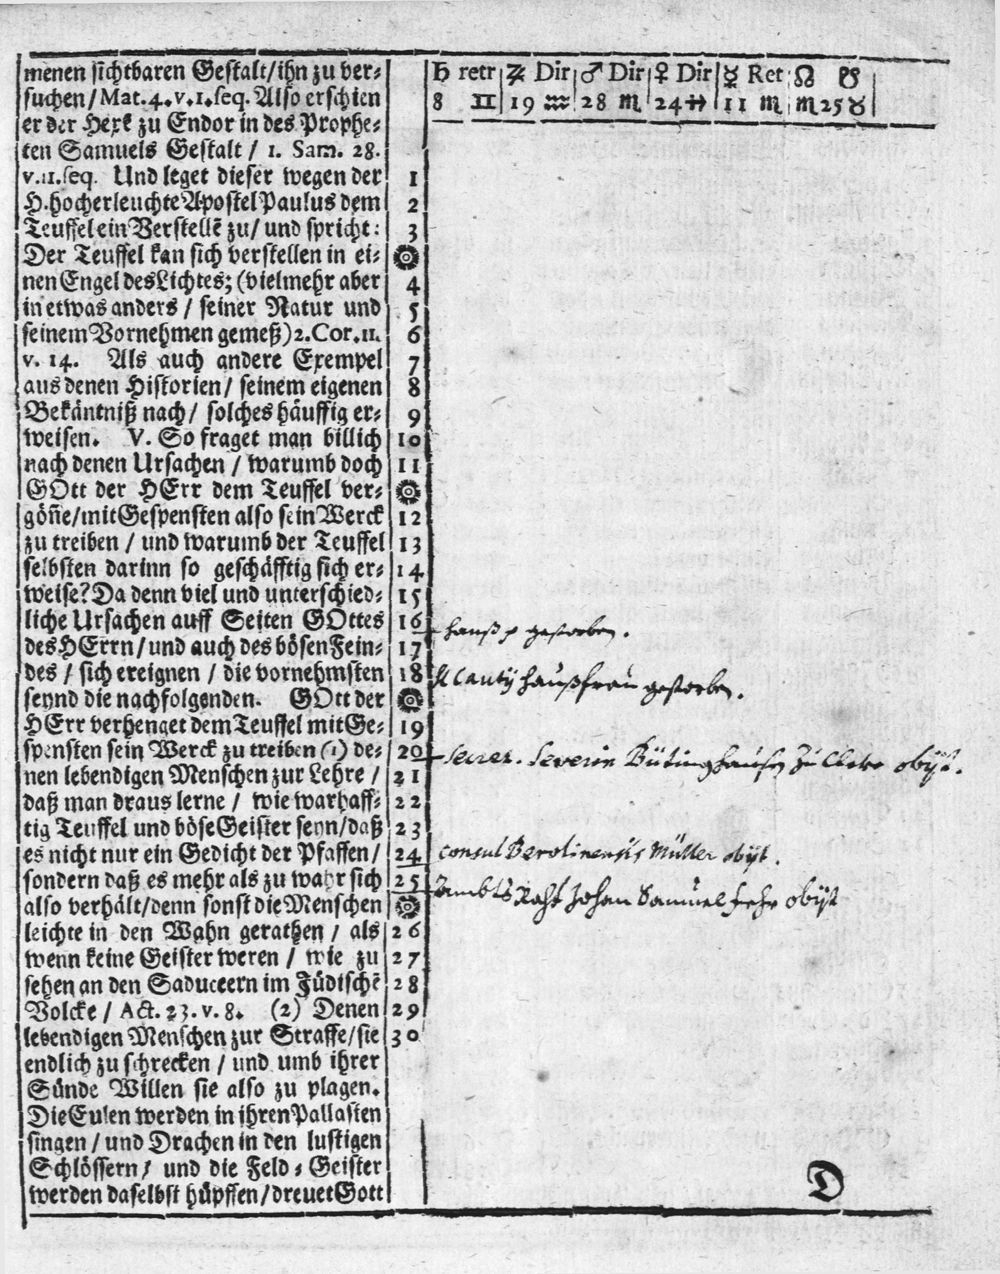 menen sichtbaren Gestalt/ihn zu ver⸗
suchen/Mat.4.v.1.seq. Also erschien
er der Hexe zu Endor in des Prophe⸗
ten Samuels Gestalt / 1. Sam. 28.
v.11.seq. Und leget dieser wegen der
H.hocherleuchte Apostel Paulus dem
Teuffel ein Verstellē zu/ und spricht:
Der Teuffel kan sich verstellen in ei⸗
nen Engel des Lichtes; (vielmehr aber
in etwas anders / seiner Natur und
seinem Vornehmen gemeß) 2.Cor.11.
v. 14. Als auch andere Exempel
aus denen Historien/ seinem eigenen
Bekäntniß nach/ solches häuffig er⸗
weisen. V. So fraget man billich
nach denen Ursachen / warumb doch
GOtt der HErr dem Teuffel ver⸗
göñe/mit Gespensten also sein Werck
zu treiben / und warumb der Teuffel
selbsten darinn so geschäfftig sich er⸗
weise? Da denn viel und unterschied⸗
liche Ursachen auff Seiten GOttes
des HErrn/ und auch des bösen Fein⸗
des / sich ereignen / die vornehmsten
seynd die nachfolgenden. GOtt der
HErr verhenget dem Teuffel mit Ge⸗
spensten sein Werck zu treiben (1) de⸗
nen lebendigen Menschen zur Lehre /
daß man draus lerne / wie warhaff⸗
tig Teuffel und böse Geister seyn/daß
es nicht nur ein Gedicht der Pfaffen/
sondern daß es mehr als zu wahr sich
also verhält/denn sonst die Menschen
leichte in den Wahn gerathen / als
wenn keine Geister weren / wie zu
sehen an den Saduceern im Jüdischē
Volcke / Act. 23. v. 8. (2) Denen
lebendigen Menschen zur Straffe/sie
endlich zu schrecken / und umb ihrer
Sünde Willen sie also zu plagen.
Die Eulen werden in ihren Pallasten
singen / und Drachen in den lustigen
Schlössern/ und die Feld⸗Geister
werden daselbst hüpffen/dreuet Gott
♄ retr ♃ Dir ♂ Dir ♀ Dir ☿ Ret ☊ ☋
8 ♊ 19 ♒ 28 ♏ 24 ♐ 11 ♏ ♏ 25 ♉
1
2
3
☉
4
5
6
7
8
9
10
11
☉
12
13
14
15
16 gestorben.
17
18 haußfrau gestorben.
☉
19
20 Secret. Severin Bütinghausen zu Cleve obijt.
21
22
23
24 Consul Berolinensis Müller obijt.
25 AmbtsRaht Johan Samuel obijt
☉
26
27
28
29
30
D